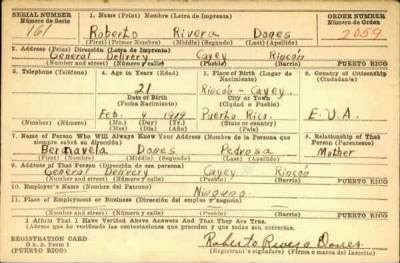 SERIAL NUMBER
Número de Serie
161
1. Name (Print) Nombre (Letra de Imprenta)
Roberto Rivera Dones
(First) (Primer Nombre) (Middle) (Segundo) (Last) (Apellido)
ORDER NUMBER
Número de Orden
2059
2. Address (Print) Dirección (Letra de Imprenta)
General Delivery Cayey Rincón
(Number and street) (Número y calle) (Pueblo) (Barrio) PUERTO RICO
3. Telephone (Teléfono)
(Number) (Número)
4. Age in Years (Edad)
21
Date of Birth
(Fecha Nacimiento)
Feb. 4 1919
(Mo.) (Day) (Yr.)
(Mes) (Día) (Año)
5. Place of Birth (Lugar de Nacimiento)
Rincón - Cayey.
City or Town
(Ciudad o Pueblo)
Puerto Rico.
(State or country)
(Estado o país)
6. Country of Citizenship
(Ciudadanía)
E.U.A.
7. Name of Person Who Will Always Know Your Address (Nombre de la Persona que siempre sabrá su dirección)
Dones Pedrosa
(First) (Nombre) (Middle) (Segundo) (Last) (Apellido)
8. Relationship of That Person (Parentesco)
Mother
9. Address of That Person (Dirección de esa persona)
General Delivery Cayey Rincón
(Number and street) (Número y calle) (Pueblo) (Barrio) PUERTO RICO
10. Employer's Name (Nombre del Patrono)
Ninguno
11. Place of Employment or Business (Dirección del empleo o negocio)
(Number and street) (Número y calle) (Pueblo) (Barrio) PUERTO RICO
I Affirm That I Have Verified Above Answers and That They Are True.
(Afirmo que he verificado las contestaciones que preceden y que todas son correctas.
REGISTRATION CARD
D. S. S. Form 1
(PUERTO RICO)
Roberto Rivera Dones
(Registrant's signature) (Firma o marca del Inscrito)